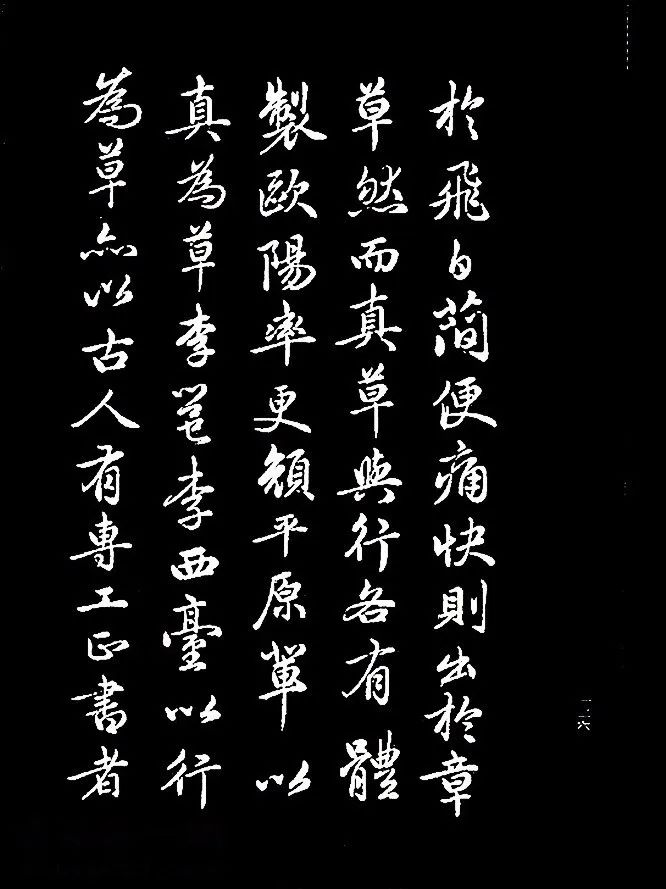 於飛白簡便痛快則出於章
草然而真草與行各有體
製歐陽率更顏平原軰以
真為草李邕李西臺以行
為草亦以古人有專工正書者
一二六